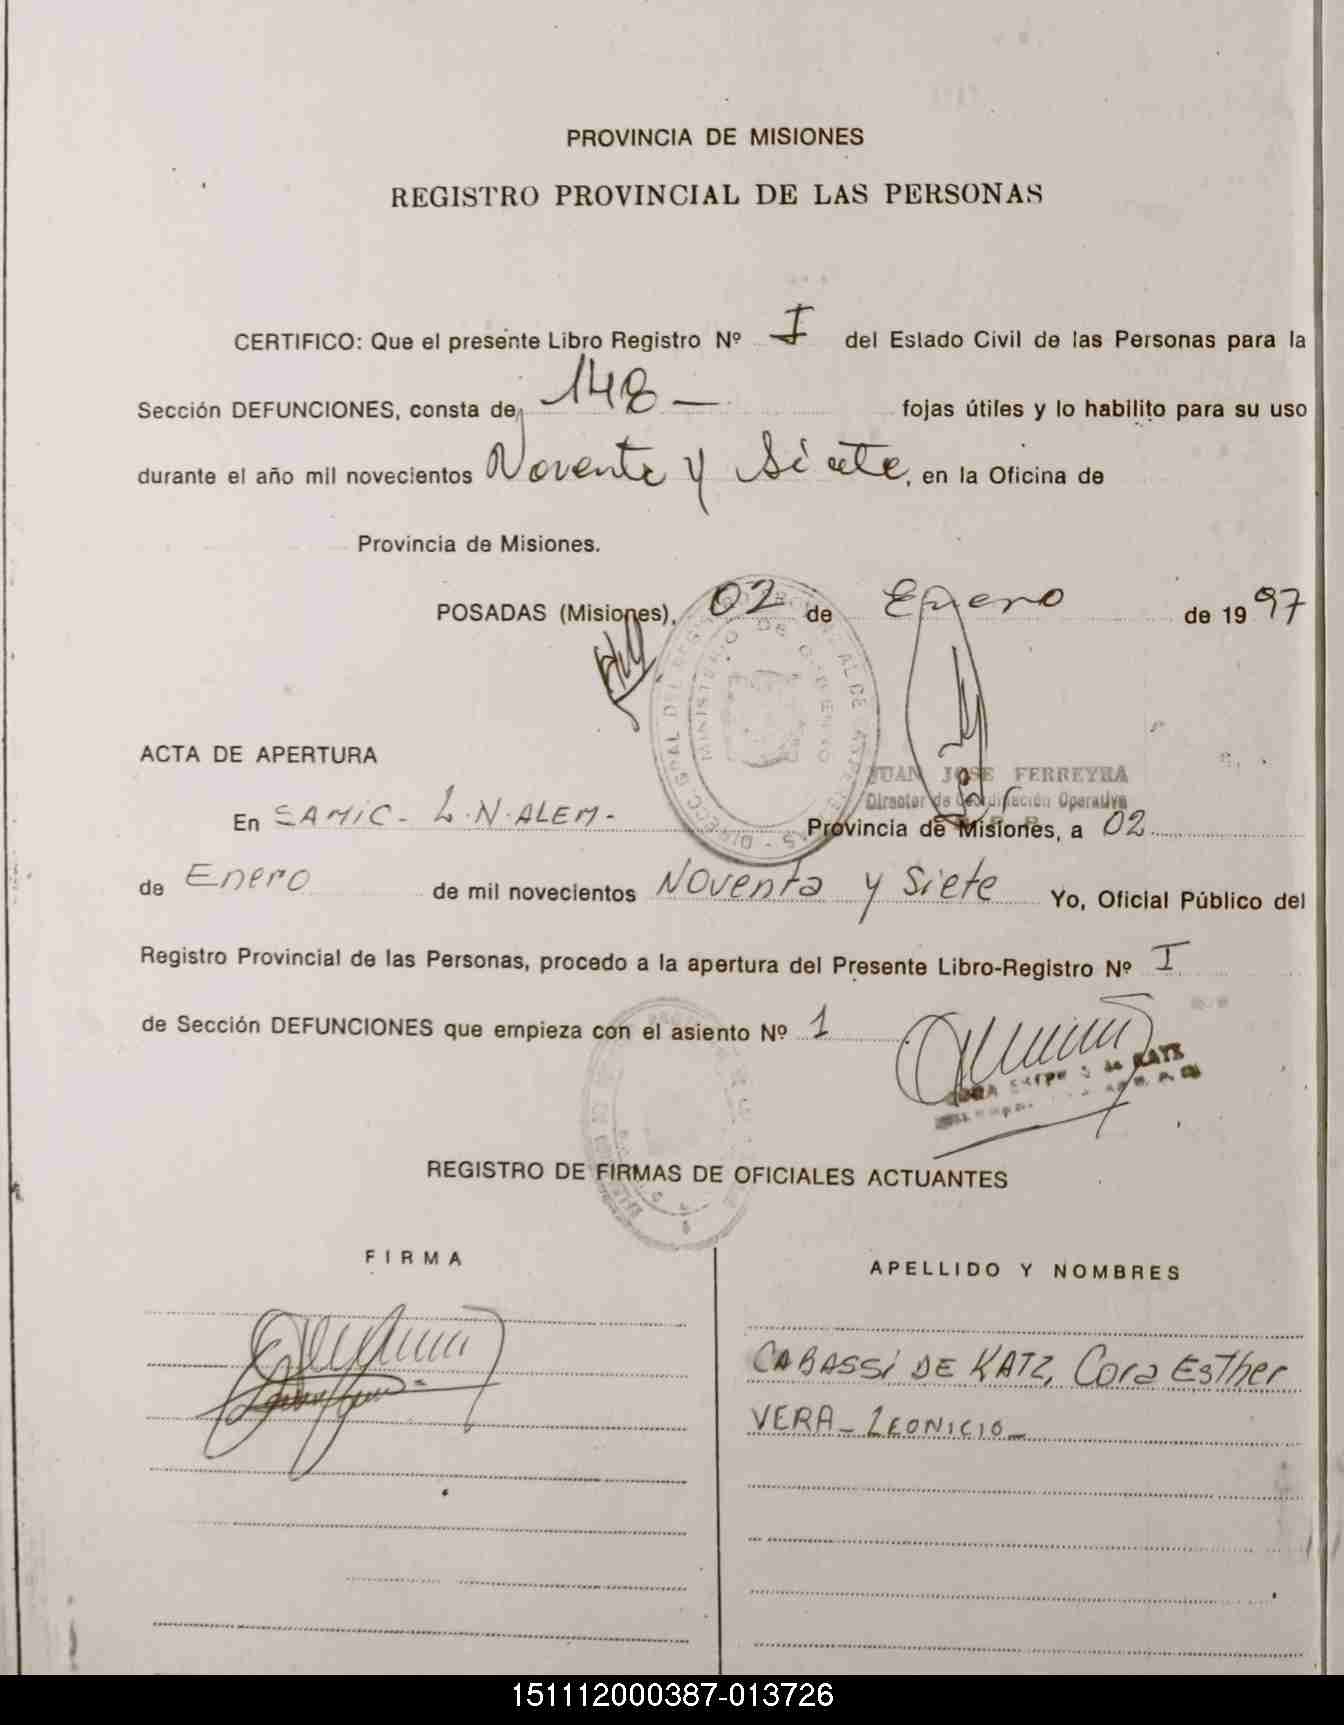 PROVINCIA DE MISIONES
REGISTRO PROVINCIAL DE LAS PERSONAS
CERTIFICO: Que el presente Libro Registro Nº I del Estado Civil de las Personas para la
Sección DEFUNCIONES, consta de 148 — fojas útiles y lo habilito para su uso
durante el año mil novecientos Novente y Siete, en la Oficina de
Provincia de Misiones.
POSADAS (Misiones), 02 de Enero de 1997
ACTA DE APERTURA
JUAN JOSE FERREYRA
Director de Coordinación Operativa
En SAMIC - L.N.ALEM - Provincia de Misiones, a 02
de Enero de mil novecientos Noventa y Siete Yo, Oficial Público del
Registro Provincial de las Personas, procedo a la apertura del Presente Libro-Registro Nº I
de Sección DEFUNCIONES que empieza con el asiento Nº 1
de KATZ
REGISTRO DE FIRMAS DE OFICIALES ACTUANTES
FIRMA APELLIDO Y NOMBRES
CABASSI DE KATZ, Cora Esther
VERA - LEONICIO -
151112000387-013726